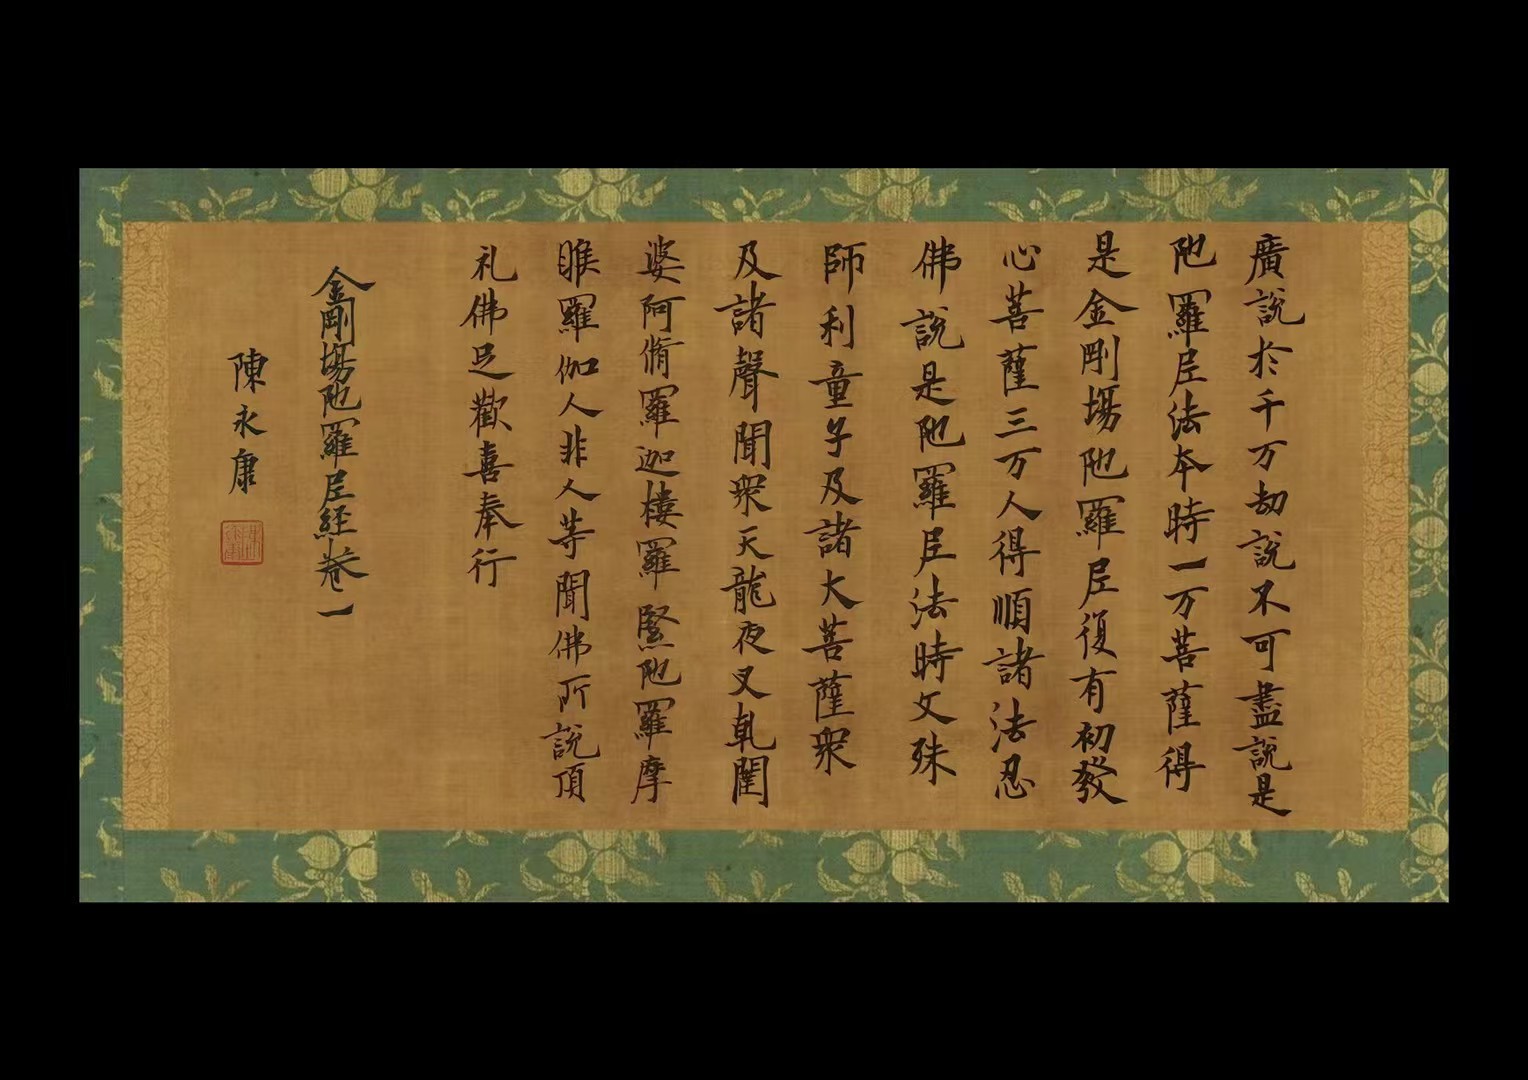 廣説於千万劫説不可盡説是
陁羅尼法本時一万菩薩得
是金剛場陁羅尼復有初發
心菩薩三万人得順諸法忍
佛説是陁羅尼法時文殊
師利童子及諸大菩薩衆
及諸聲聞衆天龍夜叉乹闥
婆阿脩羅迦樓羅緊陁羅摩
睺羅伽人非人等聞佛所説頂
礼佛足歡喜奉行
金剛場陁羅尼経卷一
陳永康